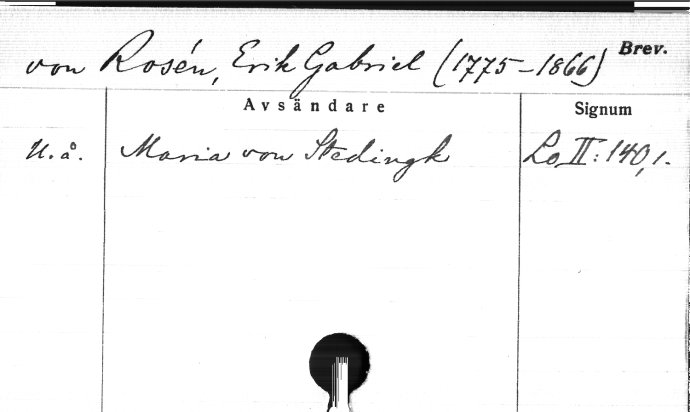 von Rosén, Erik Gabriel (1775–1866) Brev.
Avsändare Signum
U. å. Maria von Stedingk Lo II: 140,1.